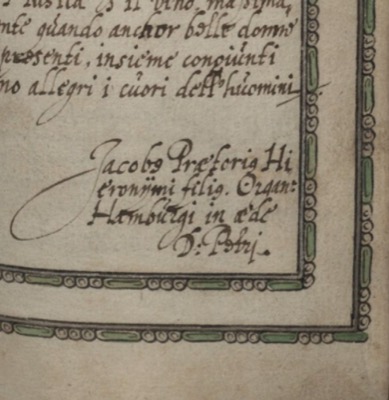 è il vino, ma
quando anchor belle donne
presenti, insieme congiunti
no allegri i cuori dell'huomini
Jacobꝰ Prætoriꝰ Hi
eronijmi filiꝰ. Organ:
Hamburgi in æde
D: Petrj.